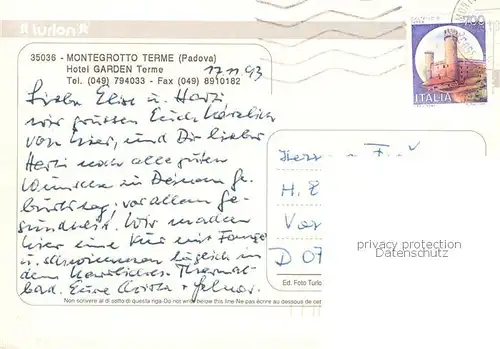 turlon
35036 - MONTEGROTTO TERME (Padova)
Hotel GARDEN Terme
Tel. (049) 794033 - Fax (049) 8910182
17.11.93
700
ITALIA
Liebe Elise u. Hartz
wir grüssen Euch herzlich
von hier, und Dir lieber
noch alle guten
Wünsche zu Deinem Ge-
burtstag, vor allem Ge-
sundheit. Wir machen
hier eine Kur mit Fango
u. schwimmen täglich in
dem herrlichen Thermal-
bad. Eure
Herrn
H.
D 07
privacy protection
Datenschutz
Ed. Foto Turlo
Non scrivere al di sotto di questa riga-Do not write below this line-Ne pas écrire au dessous de cet